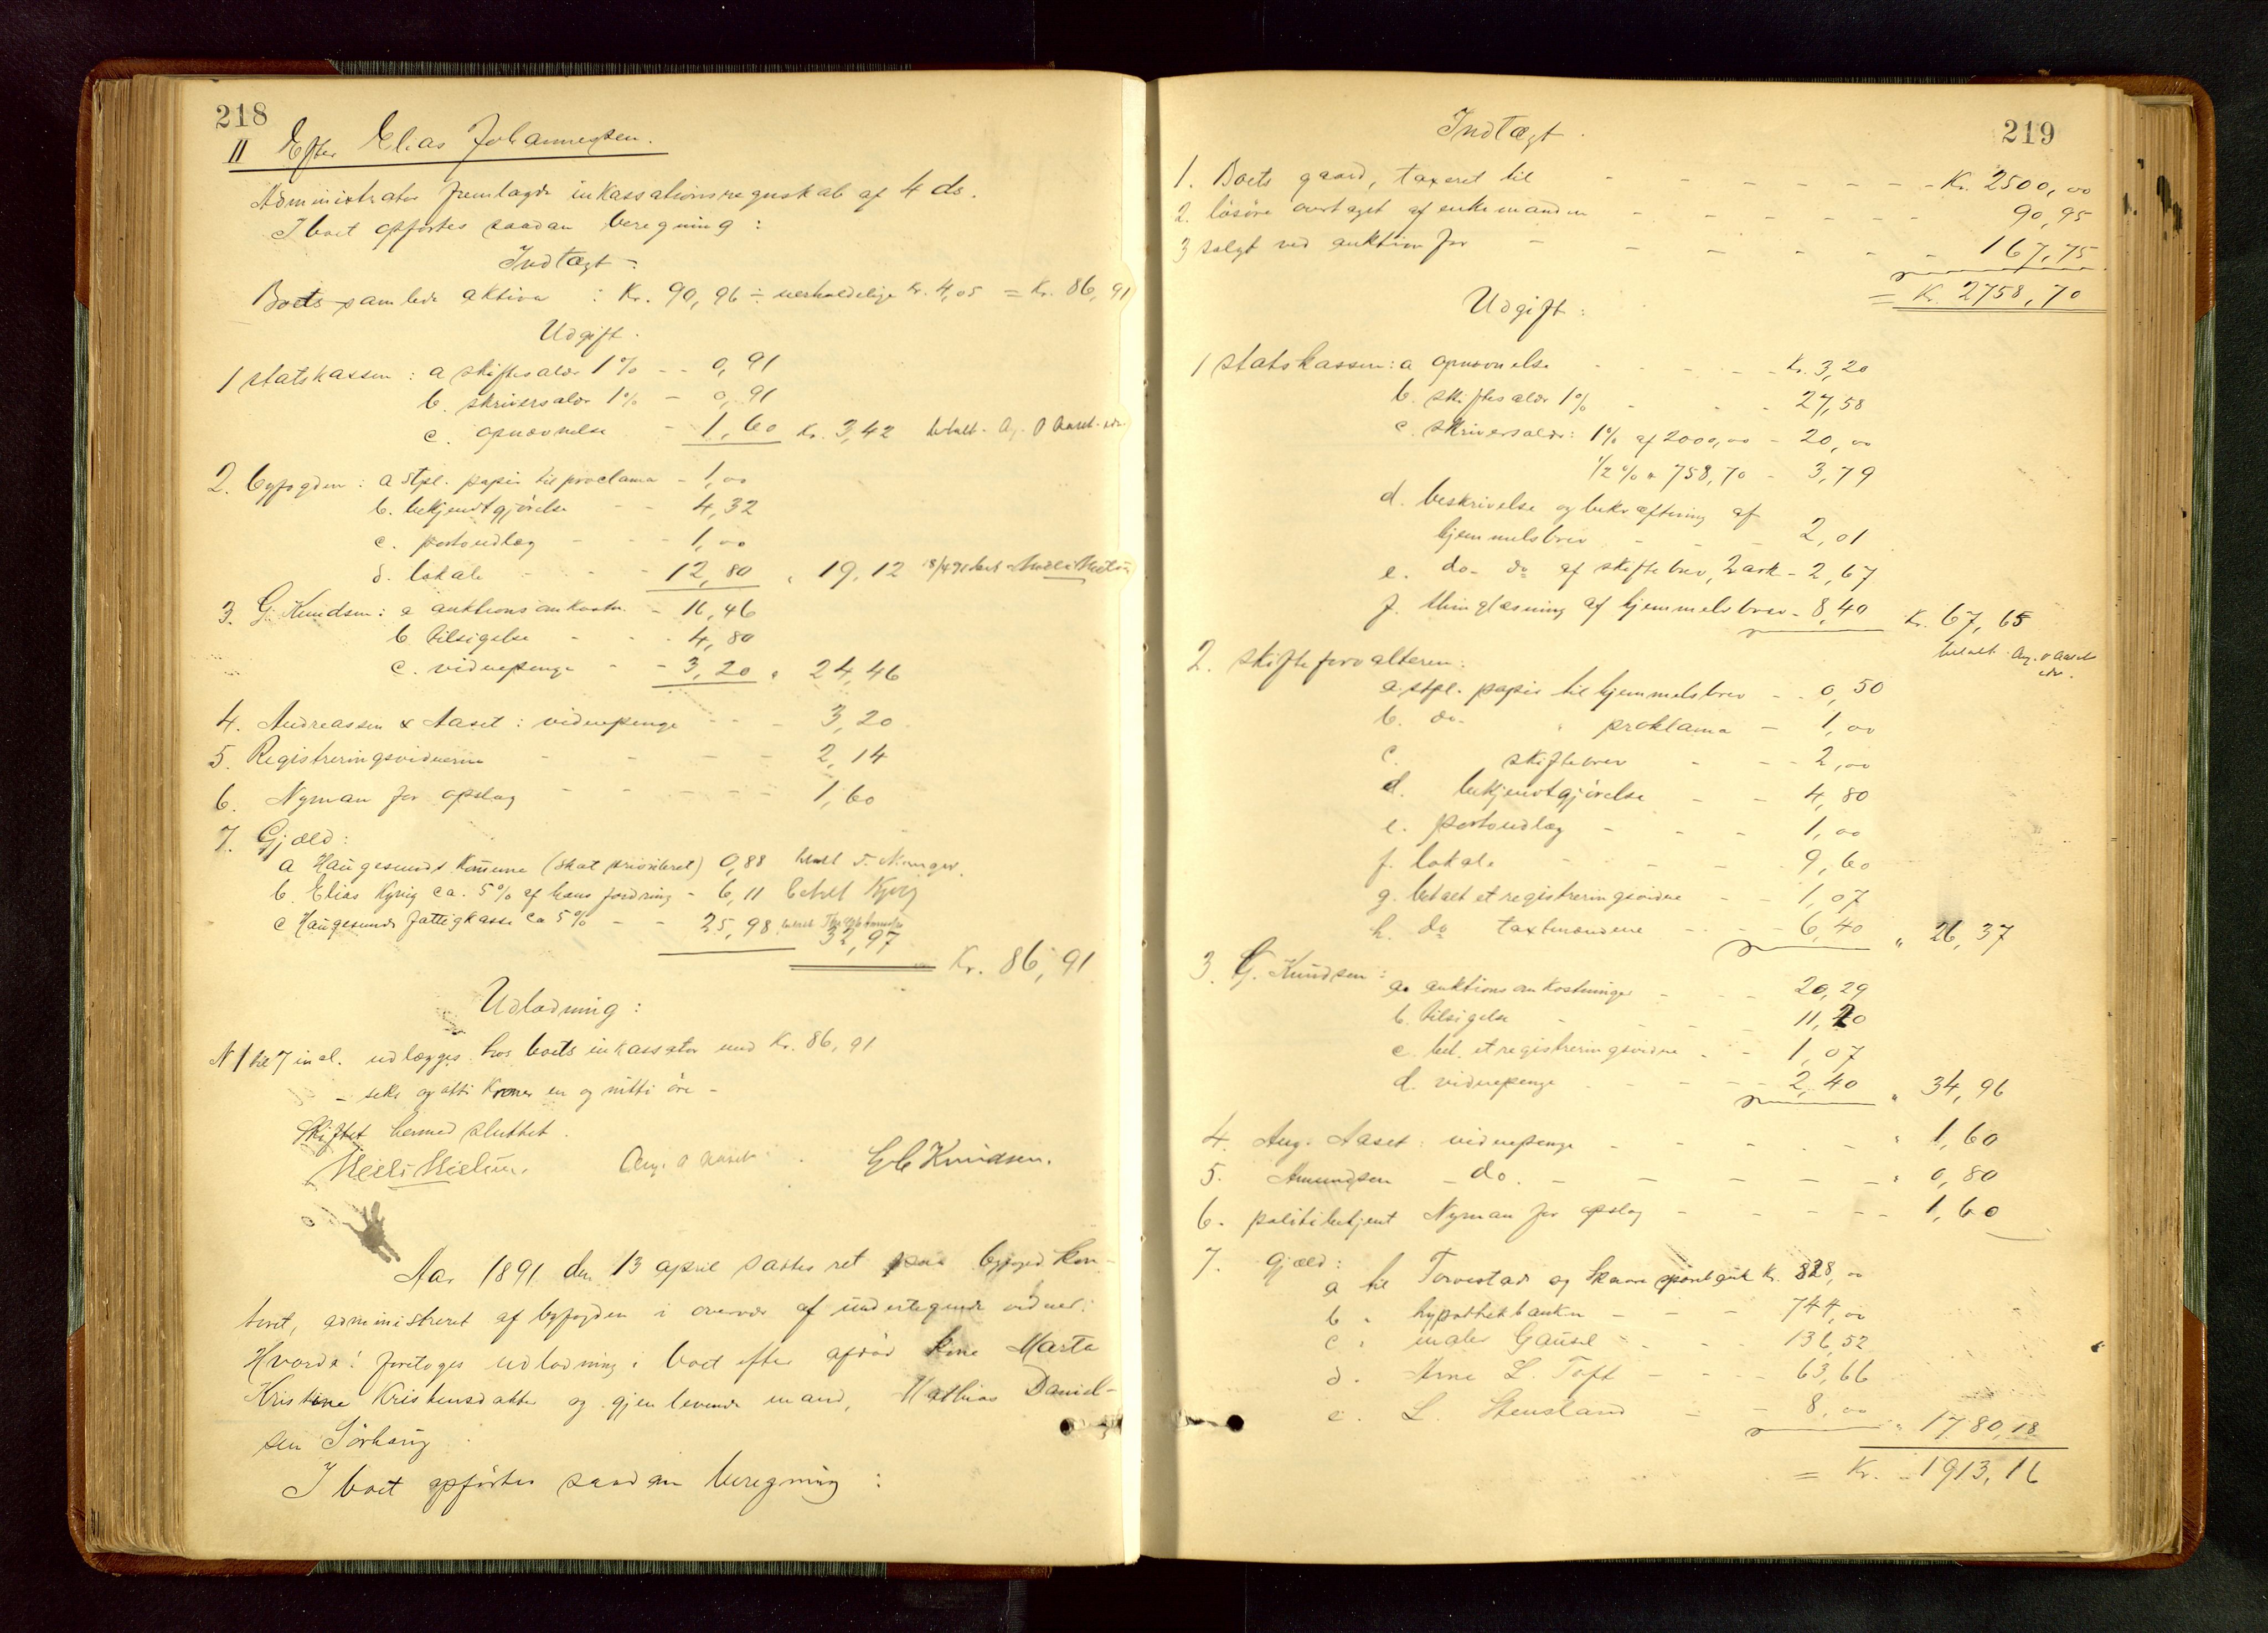 218
II Efter Elias Johannessen.
Administrator fremlagde inkassationsregnskab af 4 ds.
I boet opførtes saadan beregning :
Indtægt :
Boets samlede aktiva : Kr. 90,96 ÷ uerholdelige Kr. 4,05 = Kr. 86,91
Udgift.
1 statskassen : a skiftesalær 1% - - 0,91
b. skriversalær 1% - 0,91
c. opnævnelse - 1,60 Kr. 3,42 betalt. Aug. O Aaset
2. byfogden : a stpl. papir til proclama - 1,00
b. bekjendtgjörelse - - 4,32
c. portoudlæg - - - 1,00
d. lokale - - - 12,80 " 19,12
3. G. Knudsen : a auktionsomkostn. - 11,46
b tilsigelse - - - 4,80
c. vidnepenge - - 3,20 " 24,46
4. Andreassen & Aaset : vidnepenge - - - 3,20
5. Registreringsvidnerne - - - - - 2,14
6. Nyman for opslag - - - - - - 1,60
7. Gjæld :
a Haugesunds Komune (skat prioriteret) 0,88 betalt
b. Elias Kyvig ca. 5% af hans fordring - 6,11 betalt Kyvig
c Haugesunds fattigkasse ca 5% - - 25,98 betalt 32,97
Kr. 86,91
Udlodning :
N 1 til 7 incl. udlægges hos boets inkassator med Kr. 86,91
- seks og otti Kroner en og nitti öre -
Skiftet hermed sluttet.
Aug. O Aaset. G C Knudsen.
Aar 1891 den 13 april sattes ret paa byfogedkon-
toret, administreret af byfogden i overvær af undertegnede vidner :
Hvorda : foretoges udlodning i boet efter afdød kone Marta
Kristine Kristensdatter og gjenlevende mand, Mathias Daniel-
sen Sörhaug
I boet opførtes saadan beregning :
219
Indtægt.
1. Boets gaard, taxeret til - - - - - - - Kr. 2500,00
2. lösöre overtaget af enkemanden - - - - - - 90,95
3 solgt ved auktion for - - - - - - 167,75
= Kr. 2758,70
Udgift :
1 statskassen : a opnævnelse - - - - - Kr. 3,20
b. skiftesalær 1% - - - 27,58
c. skriversalær : 1% af 2000,00 - 20,00
1/2 % " 758,70 - 3,79
d. beskrivelse og bekræftning af
hjemmelsbrev - - - 2,01
e. do- do af skiftebrev, 2 ark - 2,67
f. thinglæsning af hjemmelsbrev - 8,40 Kr. 67,65
betalt Aug. O Aaset
2. skifteforvalteren :
a. stpl. papir til hjemmelsbrev - - 0,50
b. do- " proklama - 1,00
c. skiftebrev - - - 2,00
d. bekjendtgjörelse - - 4,80
e. portoudlæg - - - 1,00
f. lokale - - - - 9,60
g. betalt et registreringsvidne - - 1,07
h. do taxtmændene - - - 6,40 " 26,37
3 G. Knudsen :
a. auktionsomkostninger - - - 20,29
b. tilsigelse - - - - 11,20
c. bet. et registreringsvidne - - 1,07
d. vidnepenge - - - - 2,40 " 34,96
4. Aug. Aaset : vidnepenge - - - - - " 1,60
5. Amundsen - do. - - - - - " 0,80
6. politibetjent Nyman for opslag - - - - - 1,60
7. gjæld :
a til Torvestad og Skaare sparebank Kr. 828,00
b " hypothekbanken - - - 744,00
c " maler Gausel - - - 136,52
d. Arne L. Toft - - - 63,66
e. L. Stensland - - 8,00 " 1780,18
= Kr. - 1913,16